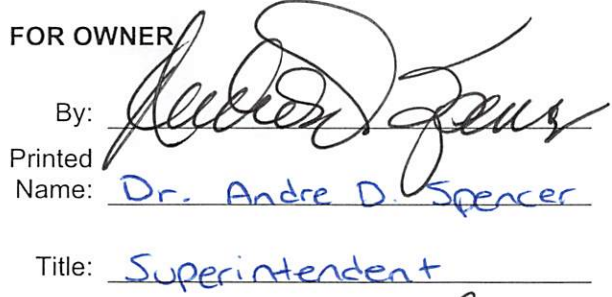 FOR OWNER
By: Andre D. Spencer
Printed
Name: Dr. Andre D. Spencer
Title: Superintendent